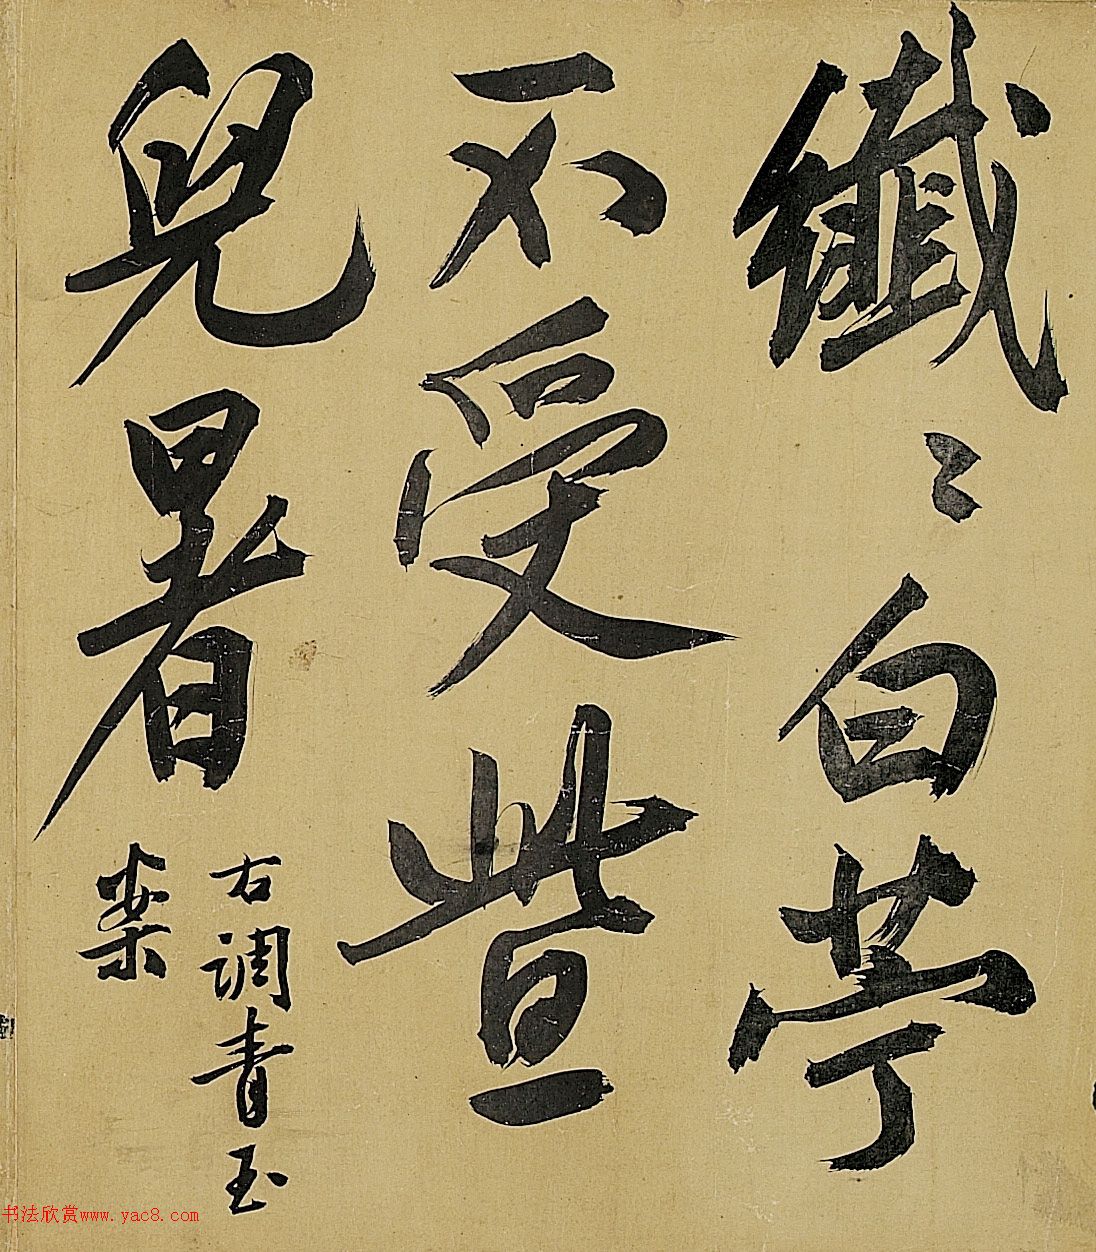 纖〻白苧
不受些
兒暑
右調青玉
案
书法欣赏www.yac8.com